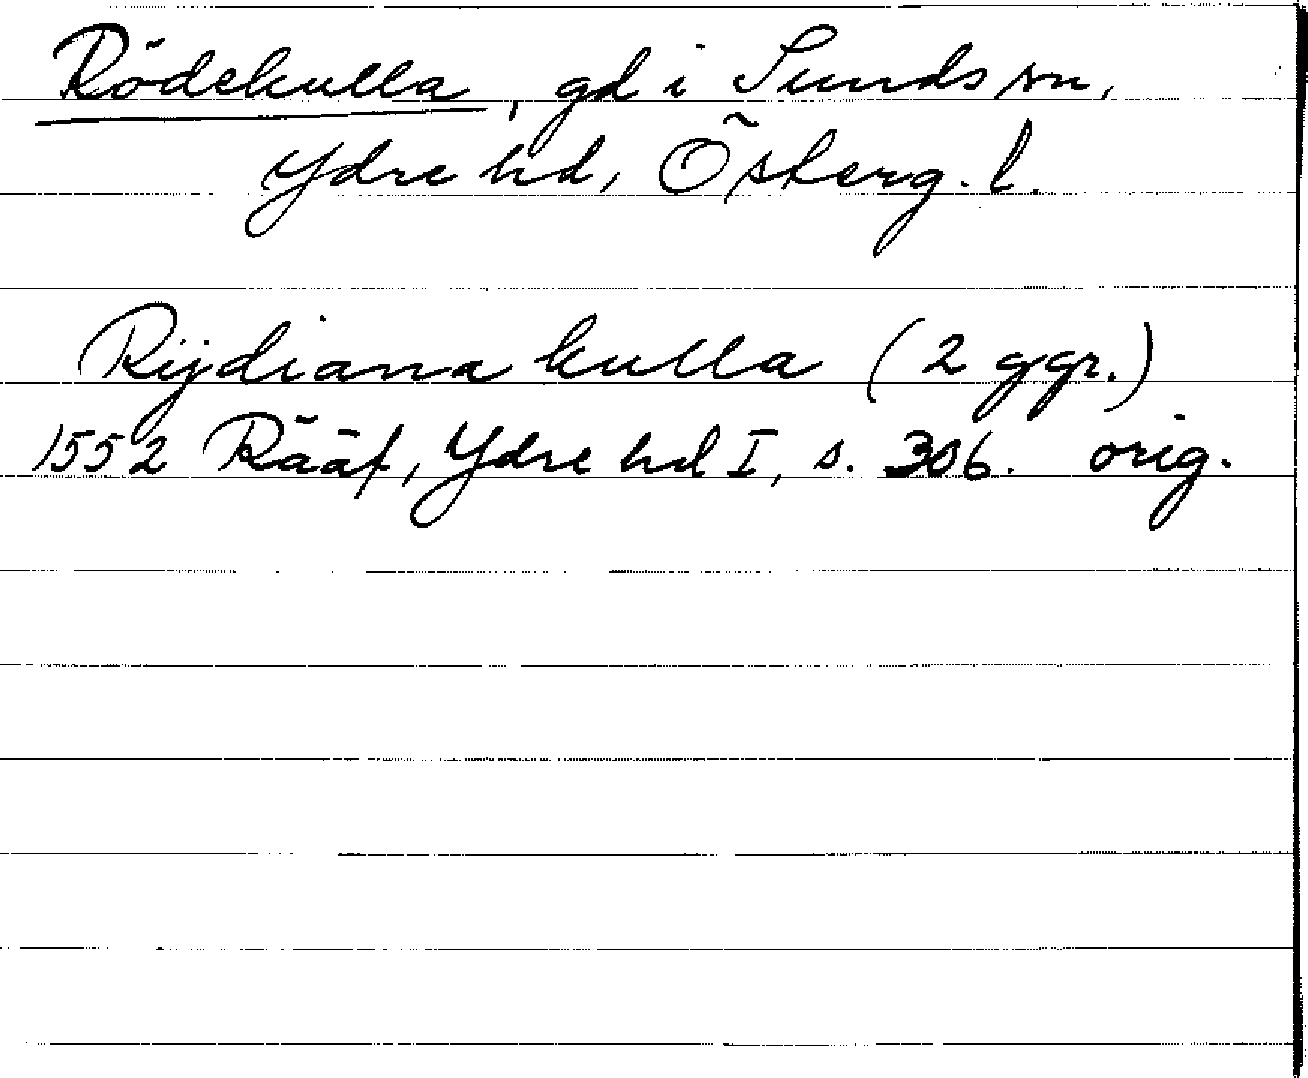 Rödekulla, gd i Sunds sn,
Ydre hd, Österg. l.
Rijdiana kulla (2 ggr.)
1552 Rääf, Ydre hd I, s. 306. orig.